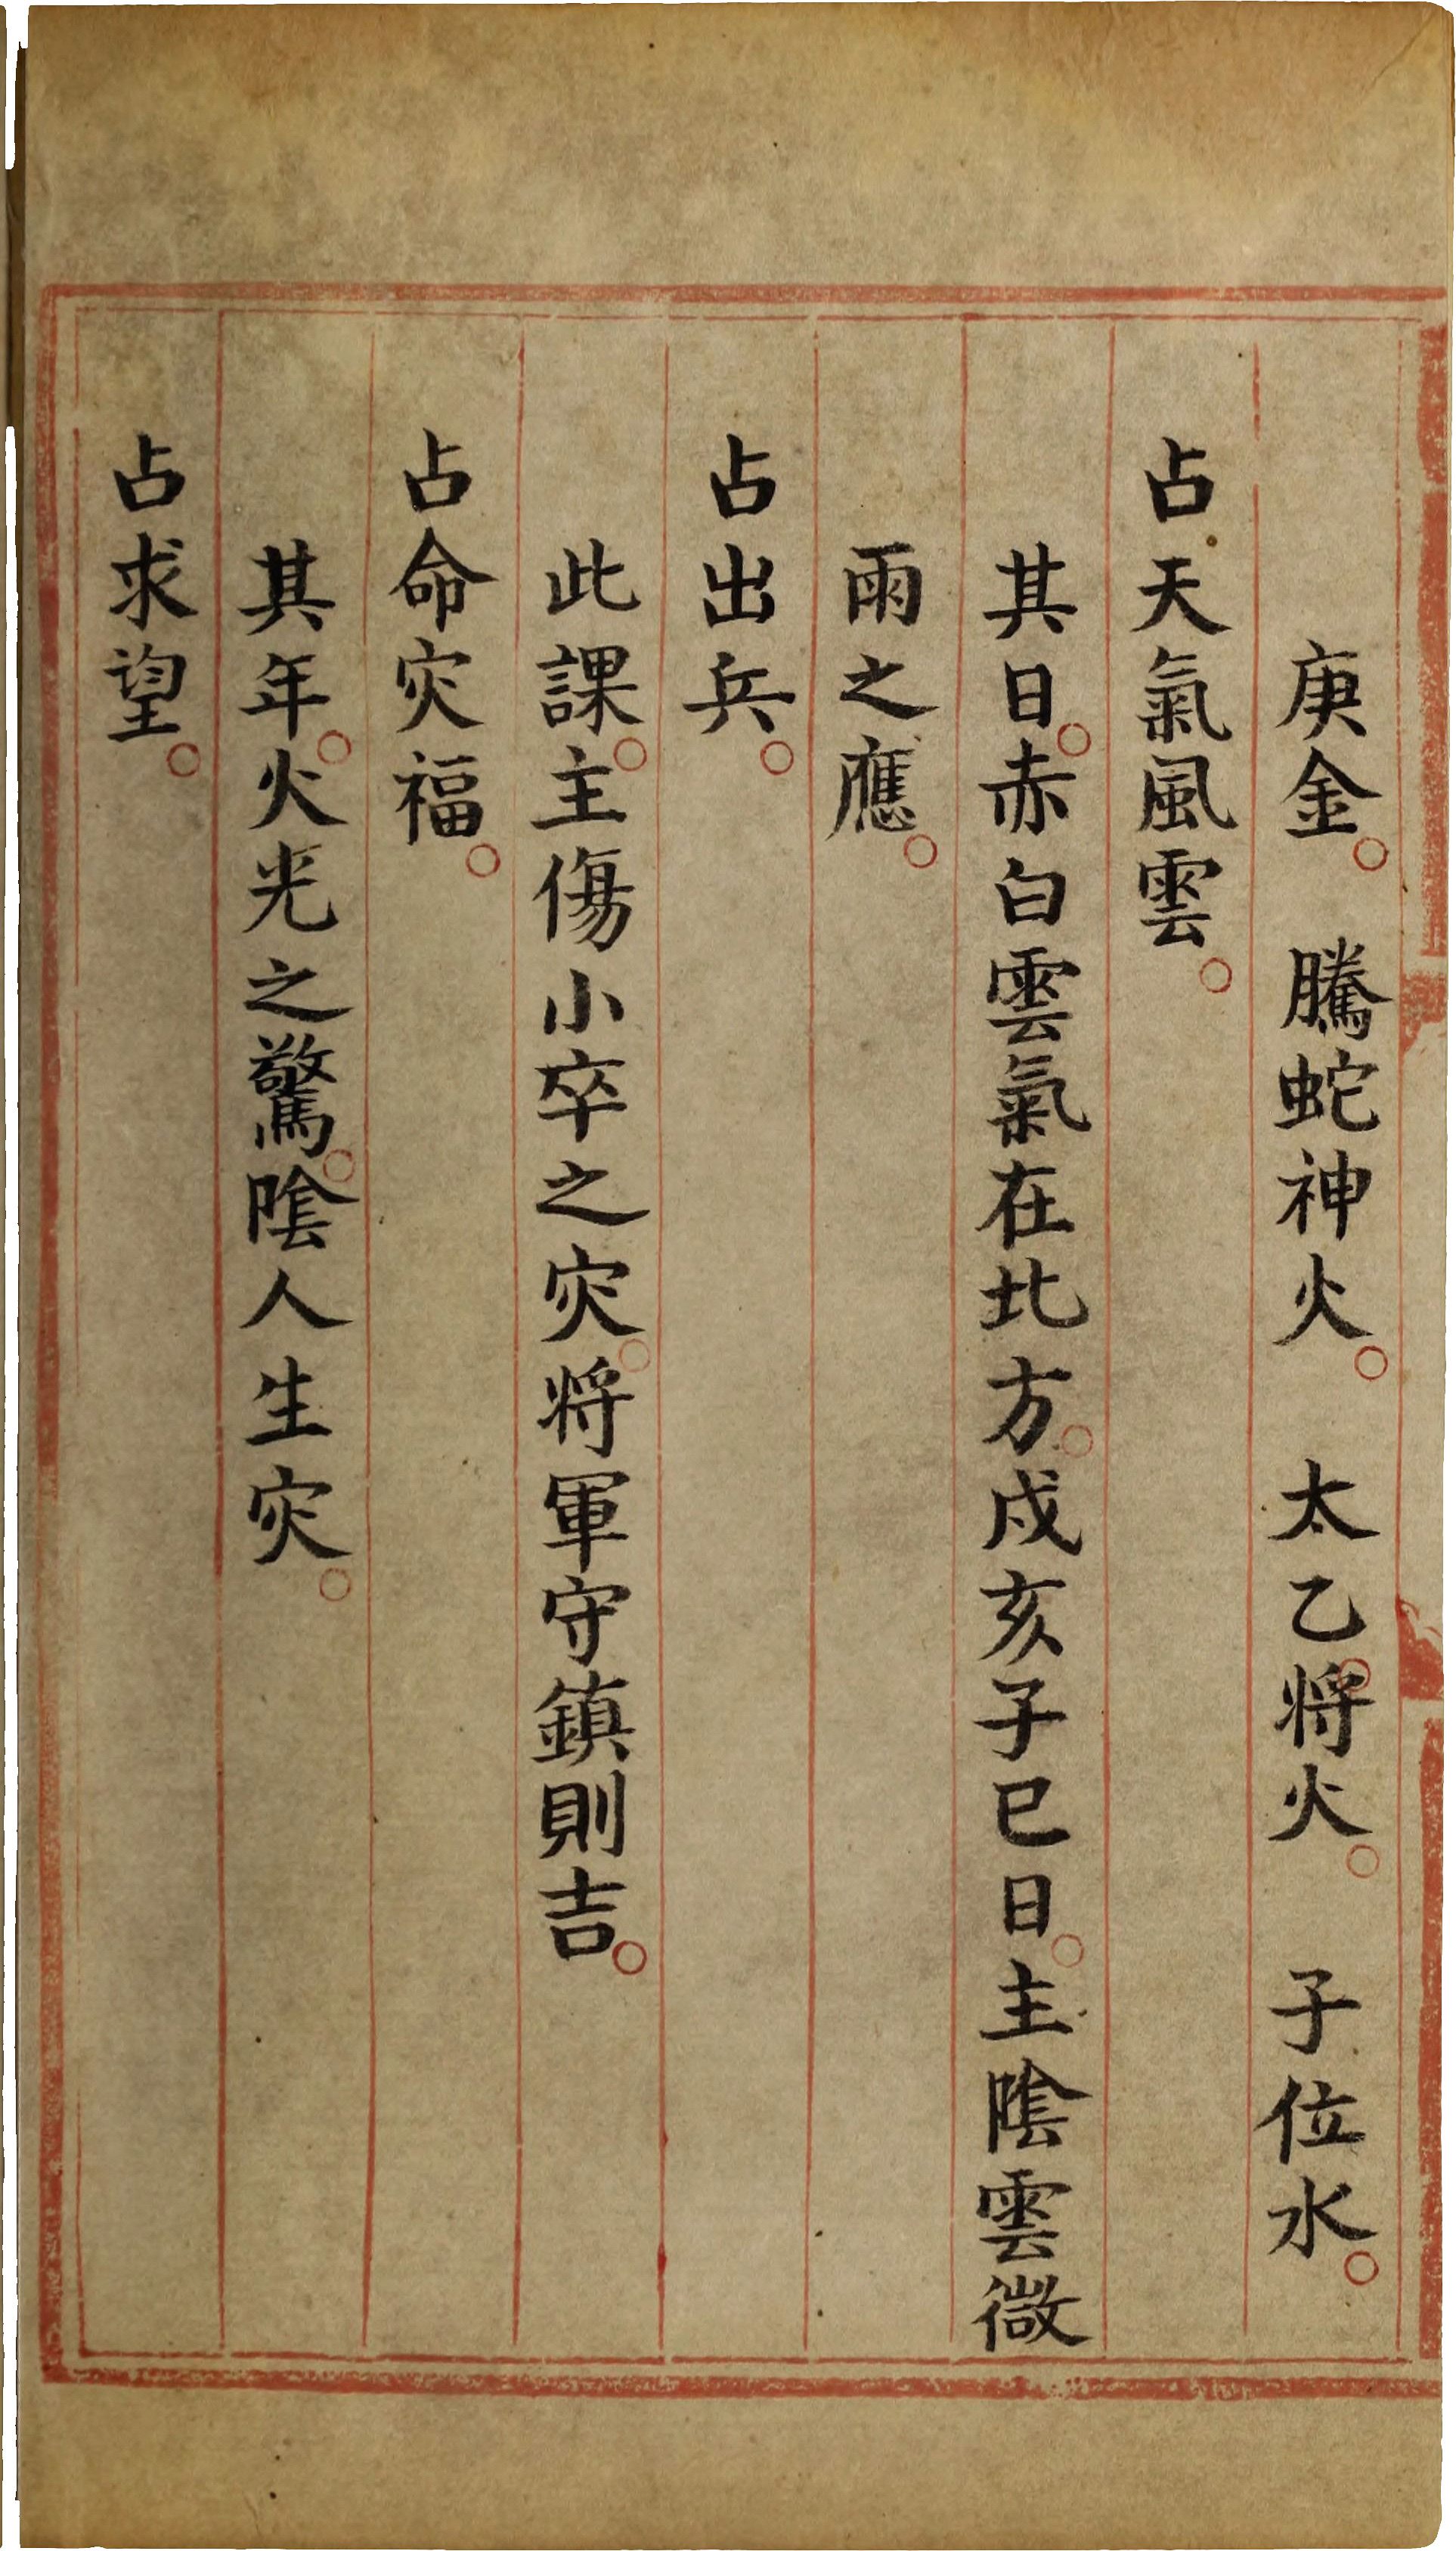 庚金。 騰蛇神火。 太乙。将火。 子位水。
占天氣風雲。
其日。赤白雲氣在北方。戍亥子巳日。主隂雲微
雨之應。
占出兵。
此課。主傷小卒之灾。将軍守鎮則吉。
占命灾福。
其年。火光之驚。隂人生灾。
占求望。